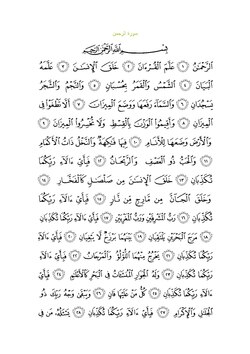 سورة الرحمن
بِسْمِ ٱللَّهِ ٱلرَّحْمَٰنِ ٱلرَّحِيمِ
ٱلرَّحْمَٰنُ ١ عَلَّمَ ٱلْقُرْءَانَ ٢ خَلَقَ ٱلْإِنسَٰنَ ٣ عَلَّمَهُ
ٱلْبَيَانَ ٤ ٱلشَّمْسُ وَٱلْقَمَرُ بِحُسْبَانٍ ٥ وَٱلنَّجْمُ وَٱلشَّجَرُ
يَسْجُدَانِ ٦ وَٱلسَّمَآءَ رَفَعَهَا وَوَضَعَ ٱلْمِيزَانَ ٧ أَلَّا تَطْغَوْا۟ فِى
ٱلْمِيزَانِ ٨ وَأَقِيمُوا۟ ٱلْوَزْنَ بِٱلْقِسْطِ وَلَا تُخْسِرُوا۟ ٱلْمِيزَانَ ٩
وَٱلْأَرْضَ وَضَعَهَا لِلْأَنَامِ ١٠ فِيهَا فَٰكِهَةٌ وَٱلنَّخْلُ ذَاتُ ٱلْأَكْمَامِ
١١ وَٱلْحَبُّ ذُو ٱلْعَصْفِ وَٱلرَّيْحَانُ ١٢ فَبِأَىِّ ءَالَآءِ رَبِّكُمَا
تُكَذِّبَانِ ١٣ خَلَقَ ٱلْإِنسَٰنَ مِن صَلْصَٰلٍ كَٱلْفَخَّارِ ١٤
وَخَلَقَ ٱلْجَآنَّ مِن مَّارِجٍ مِّن نَّارٍ ١٥ فَبِأَىِّ ءَالَآءِ رَبِّكُمَا
تُكَذِّبَانِ ١٦ رَبُّ ٱلْمَشْرِقَيْنِ وَرَبُّ ٱلْمَغْرِبَيْنِ ١٧ فَبِأَىِّ ءَالَآءِ رَبِّكُمَا تُكَذِّبَانِ
١٨ مَرَجَ ٱلْبَحْرَيْنِ يَلْتَقِيَانِ ١٩ بَيْنَهُمَا بَرْزَخٌ لَّا يَبْغِيَانِ ٢٠ فَبِأَىِّ ءَالَآءِ
رَبِّكُمَا تُكَذِّبَانِ ٢١ يَخْرُجُ مِنْهُمَا ٱللُّؤْلُؤُ وَٱلْمَرْجَانُ ٢٢ فَبِأَىِّ ءَالَآءِ رَبِّكُمَا
تُكَذِّبَانِ ٢٣ وَلَهُ ٱلْجَوَارِ ٱلْمُنشَـَٔاتُ فِى ٱلْبَحْرِ كَٱلْأَعْلَٰمِ ٢٤ فَبِأَىِّ
ءَالَآءِ رَبِّكُمَا تُكَذِّبَانِ ٢٥ كُلُّ مَنْ عَلَيْهَا فَانٍ ٢٦ وَيَبْقَىٰ وَجْهُ رَبِّكَ ذُو
ٱلْجَلَٰلِ وَٱلْإِكْرَامِ ٢٧ فَبِأَىِّ ءَالَآءِ رَبِّكُمَا تُكَذِّبَانِ ٢٨ يَسْـَٔلُهُۥ مَن فِى